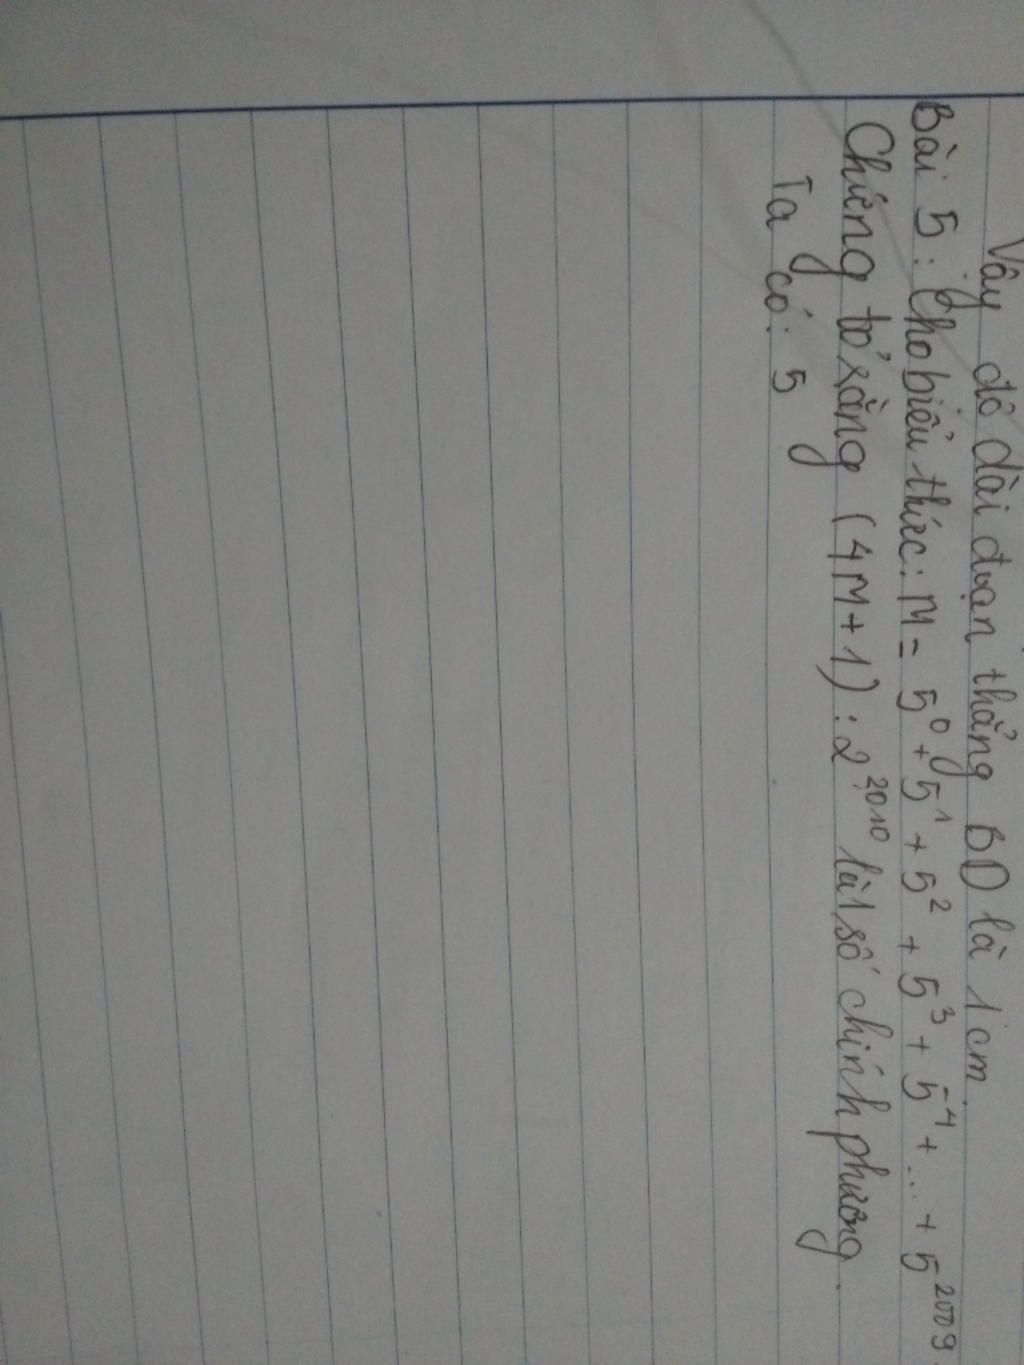 Vây độ dài đoạn thẳng BD là 1cm.
Bài 5: Cho biểu thức: M = 5⁰ + 5¹ + 5² + 5³ + 5⁴ + ... + 5²⁰⁰⁹
Chứng tỏ rằng (4M+1) : 2²⁰¹⁰ là 1 số chính phương.
Ta có: 5